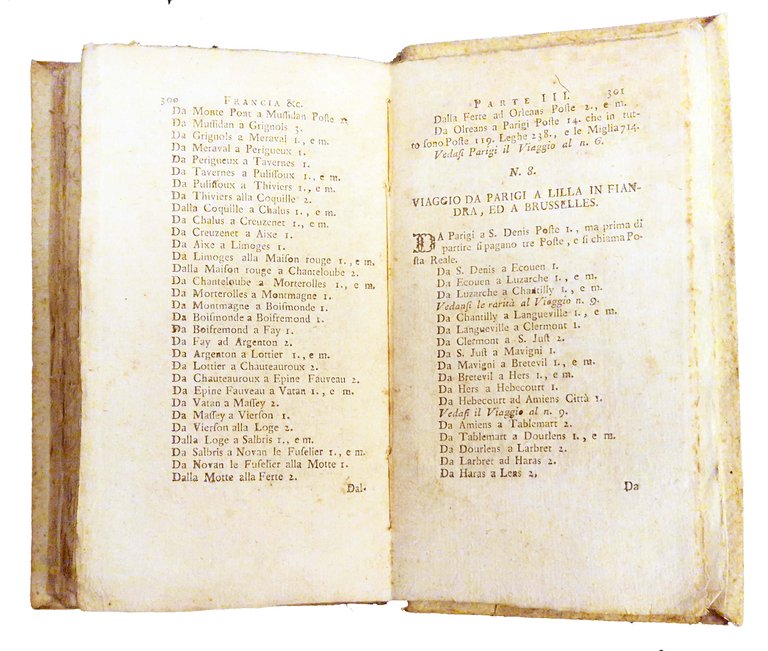 300 FRANCIA &c.
Da Monte Pont a Muſſidan Poſte 2.
Da Muſſidan a Grignols 3.
Da Grignols a Meraval 1., e m.
Da Meraval a Perigueux 1.
Da Perigueux a Tavernes 1.
Da Tavernes a Puliſſoux 1., e m.
Da Puliſſoux a Thiviers 1., e m.
Da Thiviers alla Coquille 2.
Dalla Coquille a Chalus 1., e m.
Da Chalus a Creuzenet 1., e m.
Da Creuzenet a Aixe 1.
Da Aixe a Limoges 1.
Da Limoges alla Maiſon rouge 1., e m.
Dalla Maiſon rouge a Chanteloube 2.
Da Chanteloube a Morterolles 1., e m.
Da Morterolles a Montmagne 1.
Da Montmagne a Boiſmonde 1.
Da Boiſmonde a Boiſremond 1.
Da Boiſremond a Fay 1.
Da Fay ad Argenton 2.
Da Argenton a Lottier 1., e m.
Da Lottier a Chauteauroux 2.
Da Chauteauroux a Epine Fauveau 2.
Da Epine Fauveau a Vatan 1., e m.
Da Vatan a Maſſey 2.
Da Maſſey a Vierſon 1.
Da Vierſon alla Loge 2.
Dalla Loge a Salbris 1., e m.
Da Salbris a Novan le Fuſelier 1., e m.
Da Novan le Fuſelier alla Motte 1.
Dalla Motte alla Ferte 2.
Dal-
PARTE III. 301
Dalla Ferte ad Orleans Poſte 2., e m.
Da Olreans a Parigi Poſte 14. che in tut-
to ſono Poſte 119. Leghe 238., e le Miglia 714.
Vedaſi Parigi il Viaggio al n. 6.
N. 8.
VIAGGIO DA PARIGI A LILLA IN FIAN-
DRA, ED A BRUSSELLES.
DA Parigi a S. Denis Poſte 1., ma prima di
partire ſi pagano tre Poſte, e ſi chiama Po-
ſta Reale.
Da S. Denis a Ecouen 1.
Da Ecouen a Luzarche 1., e m.
Da Luzarche a Chantilly 1., e m.
Vedanſi le rarità al Viaggio n. 9.
Da Chantilly a Langueville 1., e m.
Da Langueville a Clermont 1.
Da Clermont a S. Juſt 2.
Da S. Juſt a Mavigni 1.
Da Mavigni a Bretevil 1., e m.
Da Bretevil a Hers 1., e m.
Da Hers a Hebecourt 1.
Da Hebecourt ad Amiens Città 1.
Vedaſi il Viaggio al n. 9.
Da Amiens a Tablemart 2.
Da Tablemart a Dourlens 1., e m.
Da Dourlens a Larbret 2.
Da Larbret ad Haras 2.
Da Haras a Lens 2.
Da